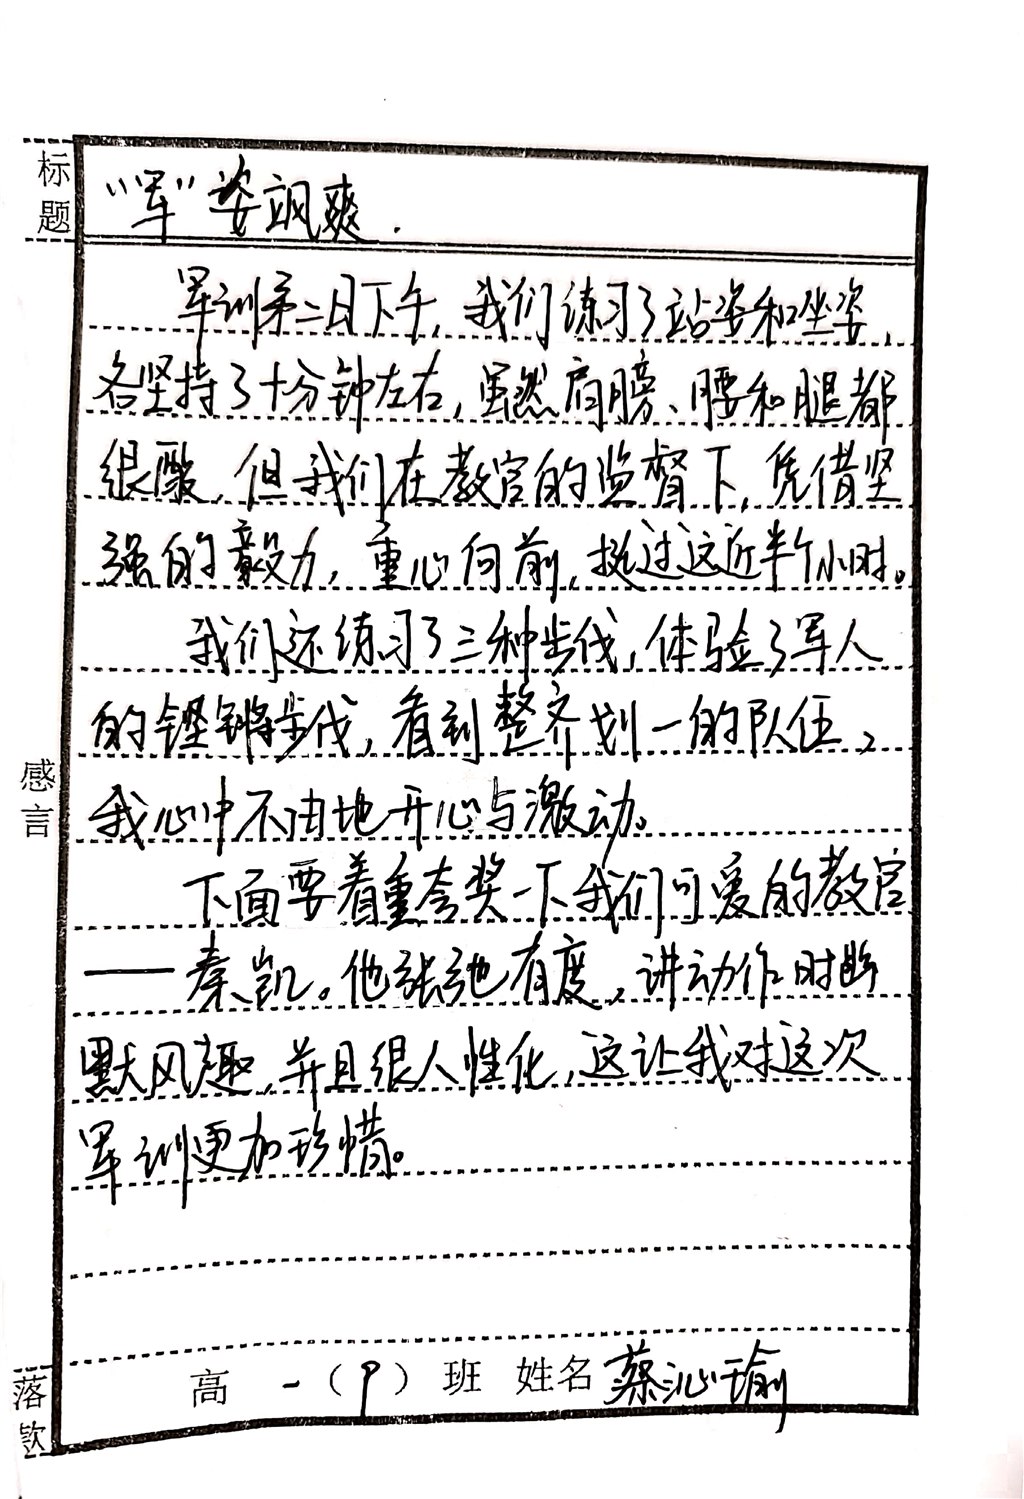 标题
“军”姿飒爽.
军训第二日下午,我们练习了站姿和坐姿,
各坚持了十分钟左右,虽然肩膀、腰和腿都
很酸,但我们在教官的监督下,凭借坚
强的毅力,重心向前,挺过这近半个小时。
我们还练习了三种步伐,体验了军人
的铿锵步伐,看到整齐划一的队伍,
感言
我心中不由地开心与激动。
下面要着重夸奖一下我们可爱的教官
——秦凯。他张弛有度,讲动作时幽
默风趣,并且很人性化,这让我对这次
军训更加珍惜。
落款
高一(9)班 姓名 蔡沁瑜